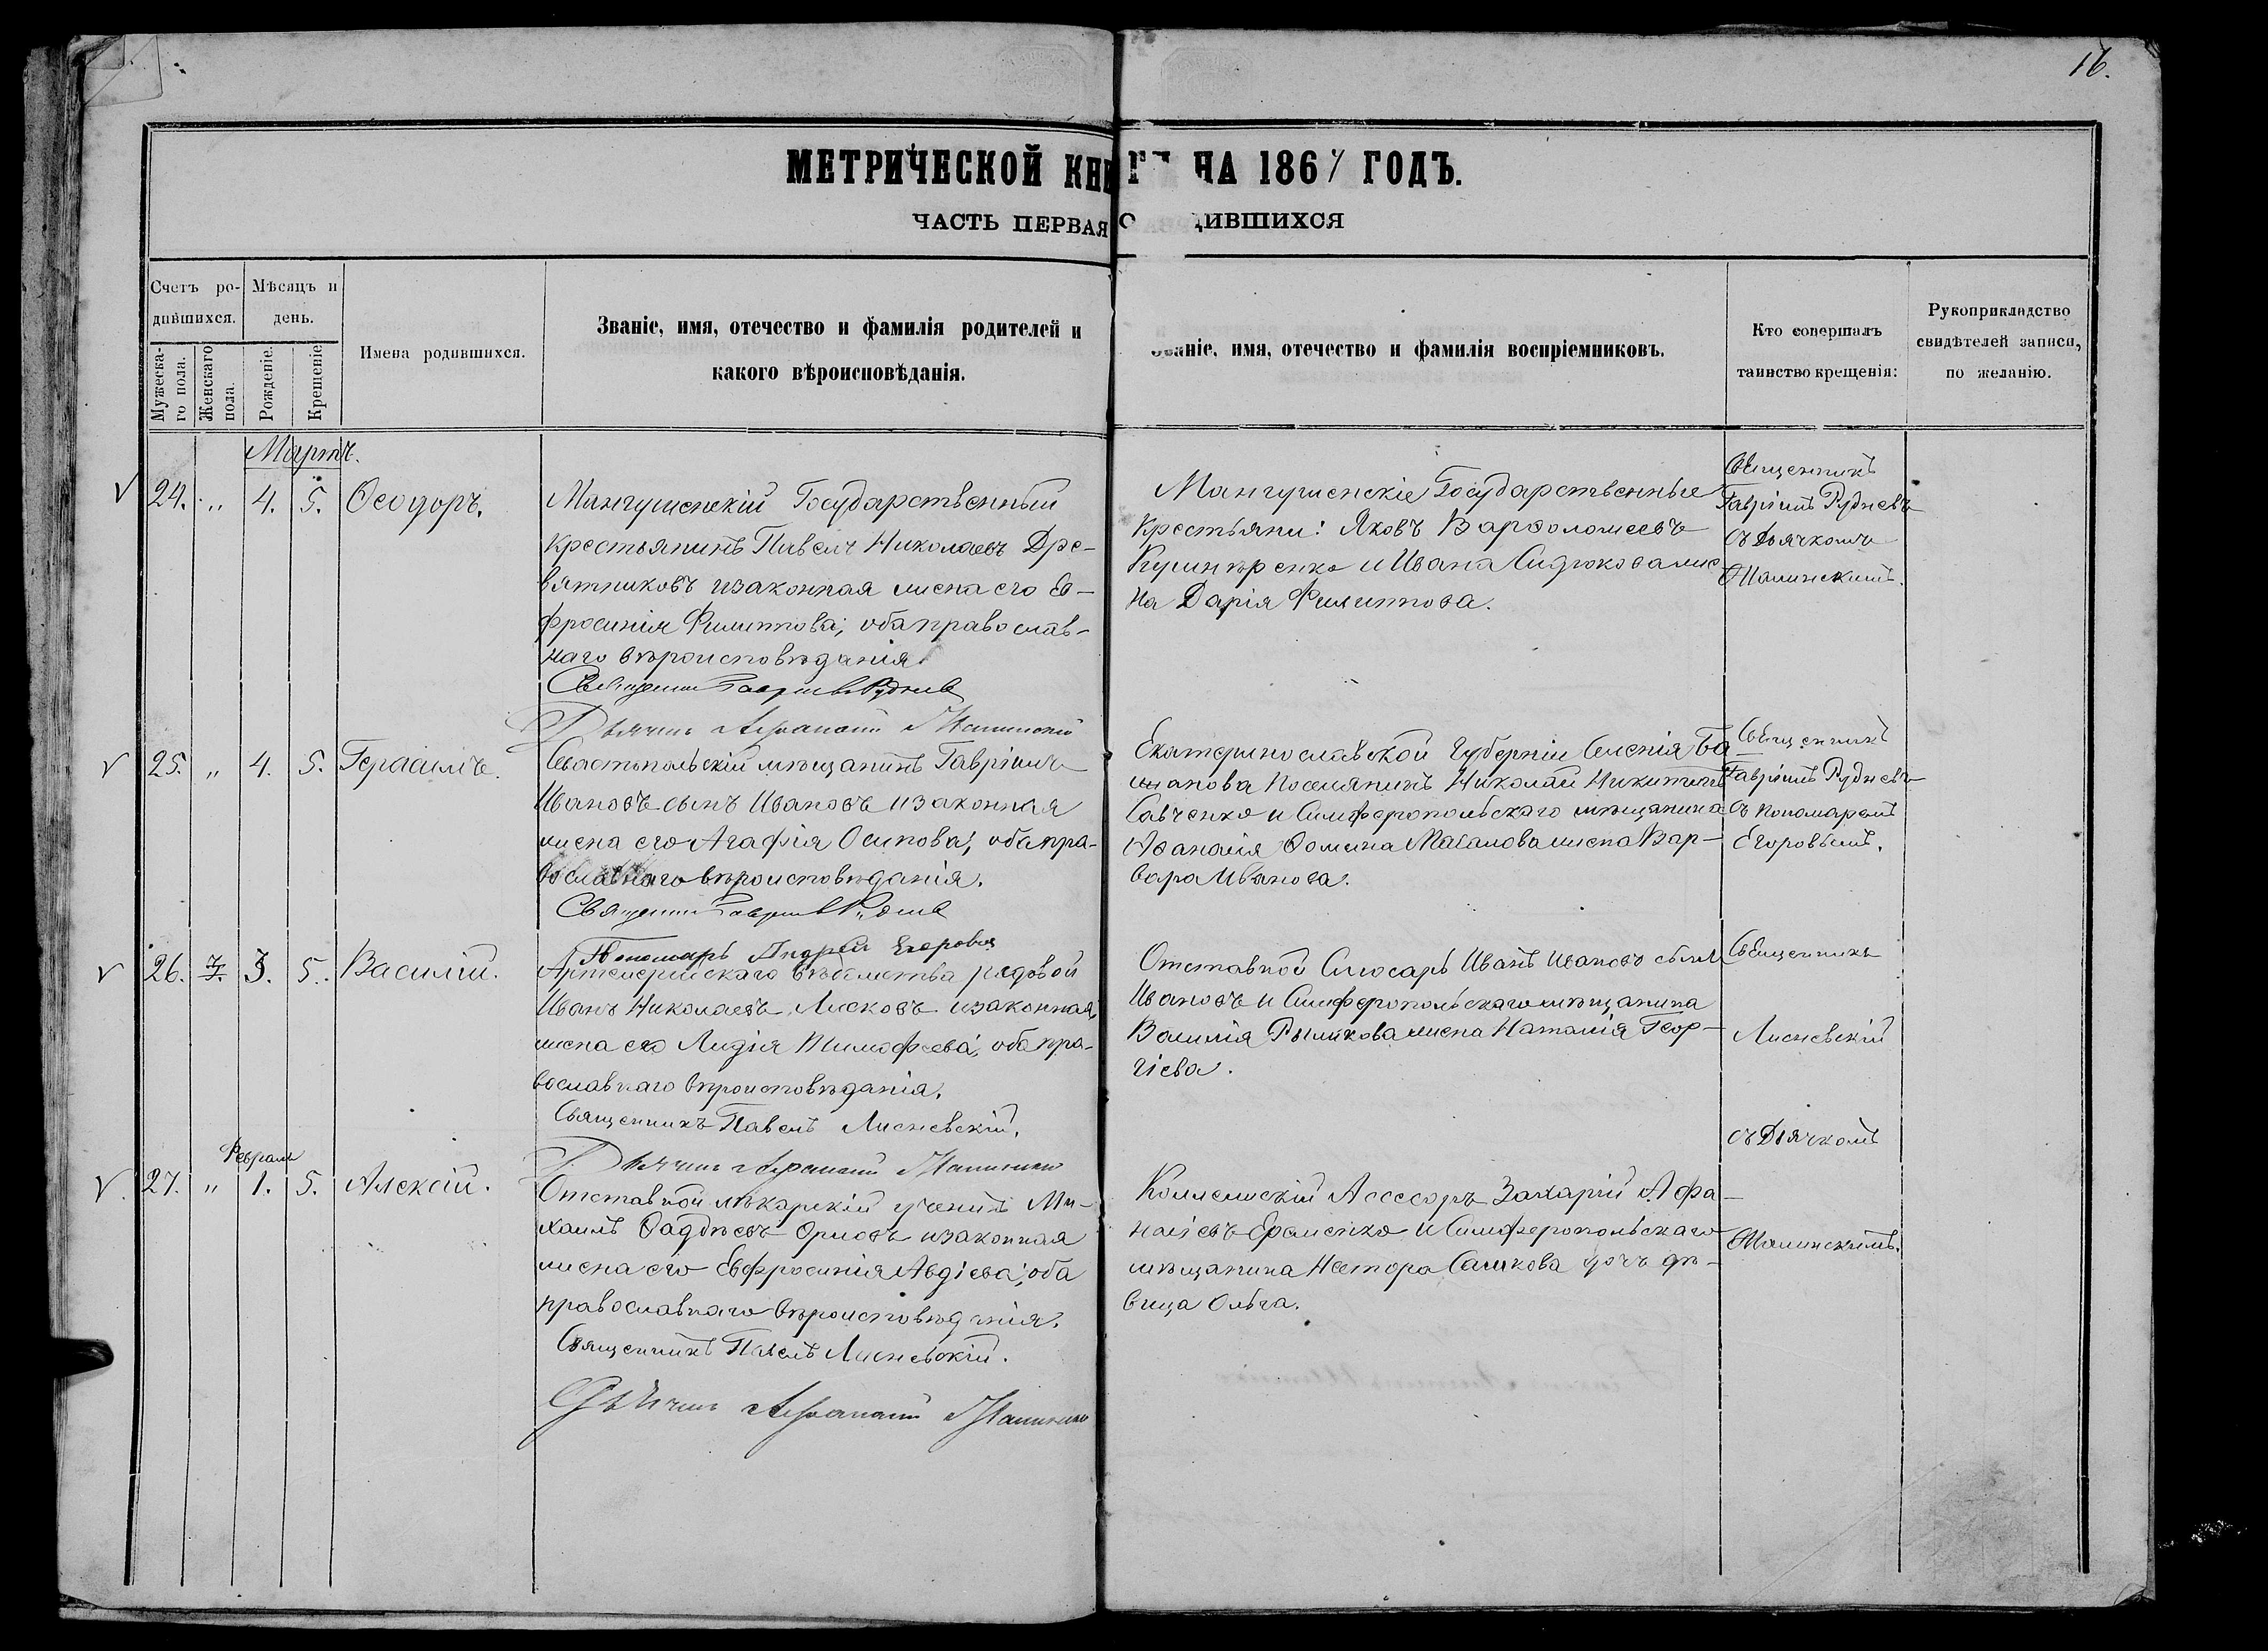 16.
МЕТРИЧЕСКОЙ КНИГИ НА 1867 ГОДЪ.
ЧАСТЬ ПЕРВАЯ О ДИВШИХСЯ
Счетъ ро-
дившихся.
Мужеска-
го пола.
Женскаго
пола.
Мѣсяцъ и
день.
Рожденіе.
Крещеніе.
Имена родившихся.
Званіе, имя, отечество и фамилія родителей и
какого вѣроисповѣданія.
Званіе, имя, отечество и фамилія воспріемниковъ.
Кто совершалъ
таинство крещенія:
Рукоприкладство
свидѣтелей записи,
по желанію.
Мартъ.
24. " 4. 5. Ѳеодоръ.
Мангушскій Государственный
крестьянинъ Павелъ Николаевъ Дре-
вятниковъ и законная жена его Ев-
фросинія Филиппова; оба православ-
наго вѣроисповѣданія.
Священникъ Гавріилъ Рудневъ
Дьячокъ Аѳанасій
Мангушскіе Государственные
крестьяни: Яковъ Варѳоломеевъ
и Ивана Сидюкова же-
на Дарія Филиппова.
Священникъ
Гавріилъ Рудневъ
съ Дьячкомъ
25. " 4. 5. Герасимъ.
Севастопольскій мѣщанинъ Гавріилъ
Ивановъ сынъ Ивановъ и законная
жена его Агафія Осипова; оба пра-
вославнаго вѣроисповѣданія.
Священникъ Гавріилъ Рудневъ
Пономарь Андрей Егоровъ
Екатеринославской Губерніи Селенія Ба
шанова Поселянинъ Николай Никитинъ
Савченко и Симферопольскаго мѣщанина
Аѳанасія Ѳомина жена Вар-
вара Иванова.
Священникъ
Гавріилъ Рудневъ
съ Пономаремъ
Егоровымъ.
26. 3. 5. Василій.
Артилерійскаго вѣдомства рядовой
Иванъ Николаевъ Лисковъ и законная
жена его Лидія Тимофеева; оба пра-
вославнаго вѣроисповѣданія.
Священникъ Павелъ Лисневскій.
Дьячокъ Аѳанасій
Отставной Слюсарь Иванъ Ивановъ сынъ
Ивановъ и Симферопольскаго мѣщанина
Василія Рышкова жена Наталія Геор-
гіева.
Священникъ
Лисневскій
съ Дьячкомъ
Февраль
27. " 1. 5. Алексій.
Отставной лѣкарскій ученикъ Ми-
хаилъ Фадѣевъ Орловъ и законная
жена его Евфросинія Авдіева; оба
православнаго вѣроисповѣданія.
Священникъ Павелъ Лисневскій.
Дьячокъ Аѳанасій
Коллежскій Ассесоръ Захарій Афа-
насіевъ Ероменко и Симферопольскаго
мѣщанина Нестора Сашкова дочь дѣ-
вица Ольга.